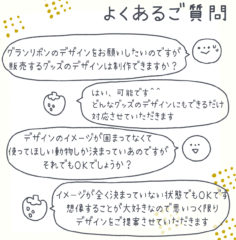 よくあるご質問
グランリボンのデザインをお願いしたいのですが
販売するグッズのデザインは制作できますか?
はい、可能です^^
どんなグッズのデザインにもできるだけ
対応させていただきます
デザインのイメージが固まってなくて
使ってほしい動物しか決まっていあのですが
それでもOKでしょうか?
イメージが全く決まっていない状態でもOKです
想像することが大好きなので思いつく限り
デザインをご提案させていただきます